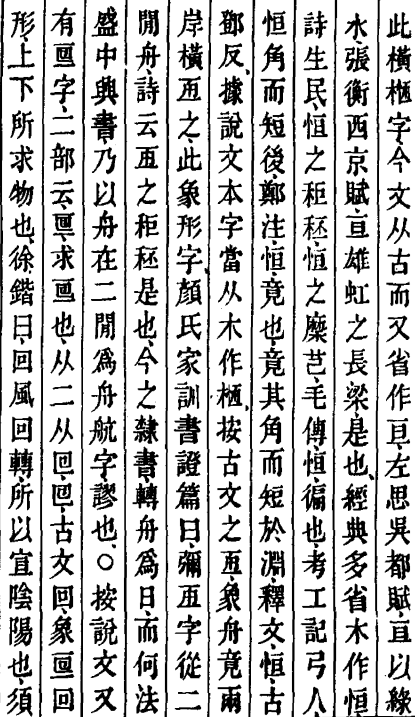 此橫㮓字、今文从古而又省作亘、左思吳都賦、亘以綠
水、張衡西京賦、亘雄虹之長梁、是也、經典多省木作恒、
詩生民、恒之秬秠、恒之穈芑、毛傳、恒、徧也、考工記弓人、
恒角而短、後鄭注、恒、竟也、竟其角而短於淵、釋文、恒、古
鄧反、據說文本字當从木作㮓、按古文之亙、象舟竟兩
岸橫亙之、此象形字、顏氏家訓書證篇曰、彌亙字從二
閒舟、詩云亙之秬秠是也、今之隸書、轉舟爲日、而何法
盛中興書、乃以舟在二閒爲舟航字、謬也、○按說文又
有𠄢字、二部云、𠄢、求𠄢也、从二从囘、囘、古文回、象𠄢回
形、上下所求物也、徐鍇曰、回風回轉、所以宣陰陽也、須